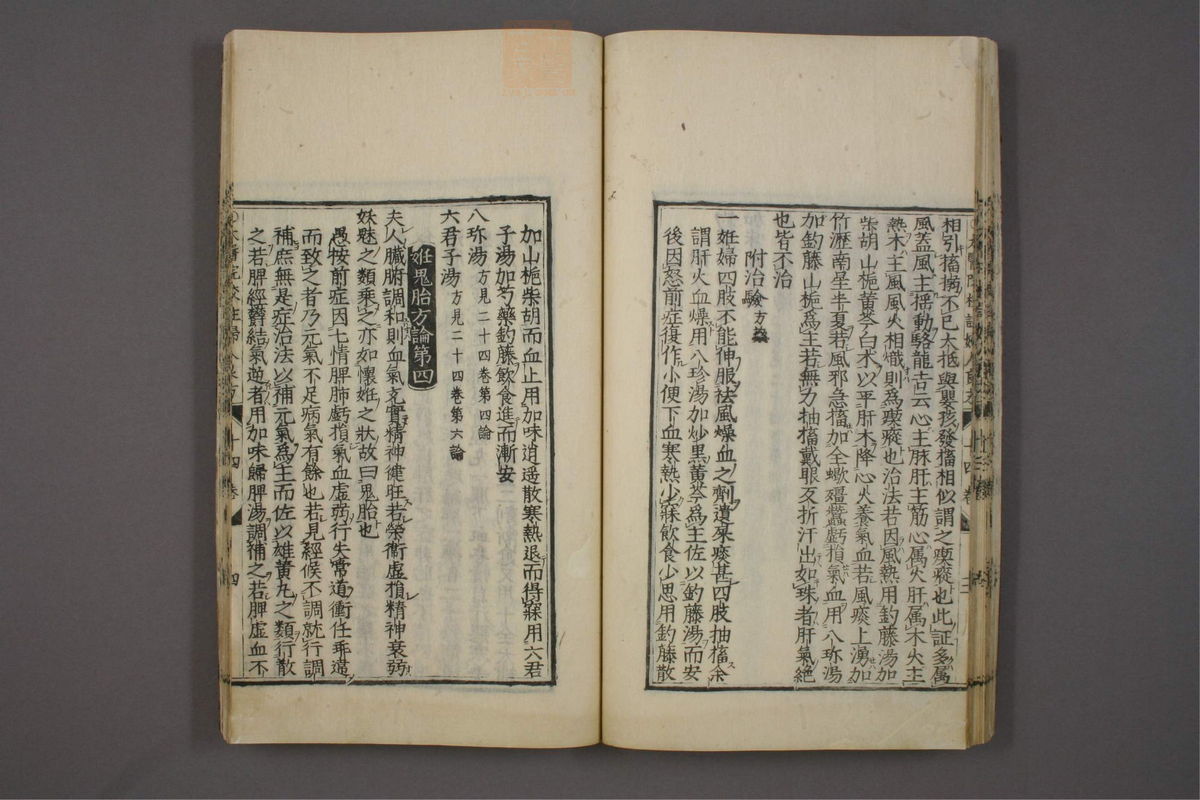 相引搐搦不已大抵與嬰孩發搐相似謂之瘈瘲也此証多属
風蓋風主揺動駱龍吉云心主脉肝主筋心属火肝属木火主
熱木主風風火相熾則為瘈瘲也治法若因風熱用釣藤湯加
柴胡山梔黄芩白术以平肝木降心火養氣血若風痰上湧加
竹瀝南星半夏若風邪急搐加全蝎殭蠶虧損氣血用八珎湯
加釣藤山梔爲主若無力抽搐戴眼反折汗出如珠者肝氣絶
也皆不治
附治驗方藥
一妊婦四肢不能伸服祛風燥血之劑遺尿痰甚四肢抽搐余
謂肝火血燥用八珍湯加炒黒黄芩爲主佐以釣藤湯而安
後因怒前症復作小便下血寒熱少寐飲食少思用釣藤散
加山梔柴胡而血止用加味逍遥散寒熱退而得寐用六君
子湯加芍藥釣藤飲食進而漸安
八珎湯方見二十四卷第四論
六君子湯方見二十四卷第六論
妊鬼胎方論第四
夫人臓腑調和則血氣充實精神健旺若榮衞虚損精神衰弱
妖魅之類乘之亦如懷妊之狀故曰鬼胎也
愚按前症因七情脾肺虧損氣血虚弱行失常道衝任乖違
而致之者乃元氣不足病氣有餘也若見經候不調就行調
補庶無是症治法以補元氣爲主而佐以雄黄丸之類行散
之若脾經欝結氣逆者用加味歸脾湯調補之若脾虚血不
十四卷
四